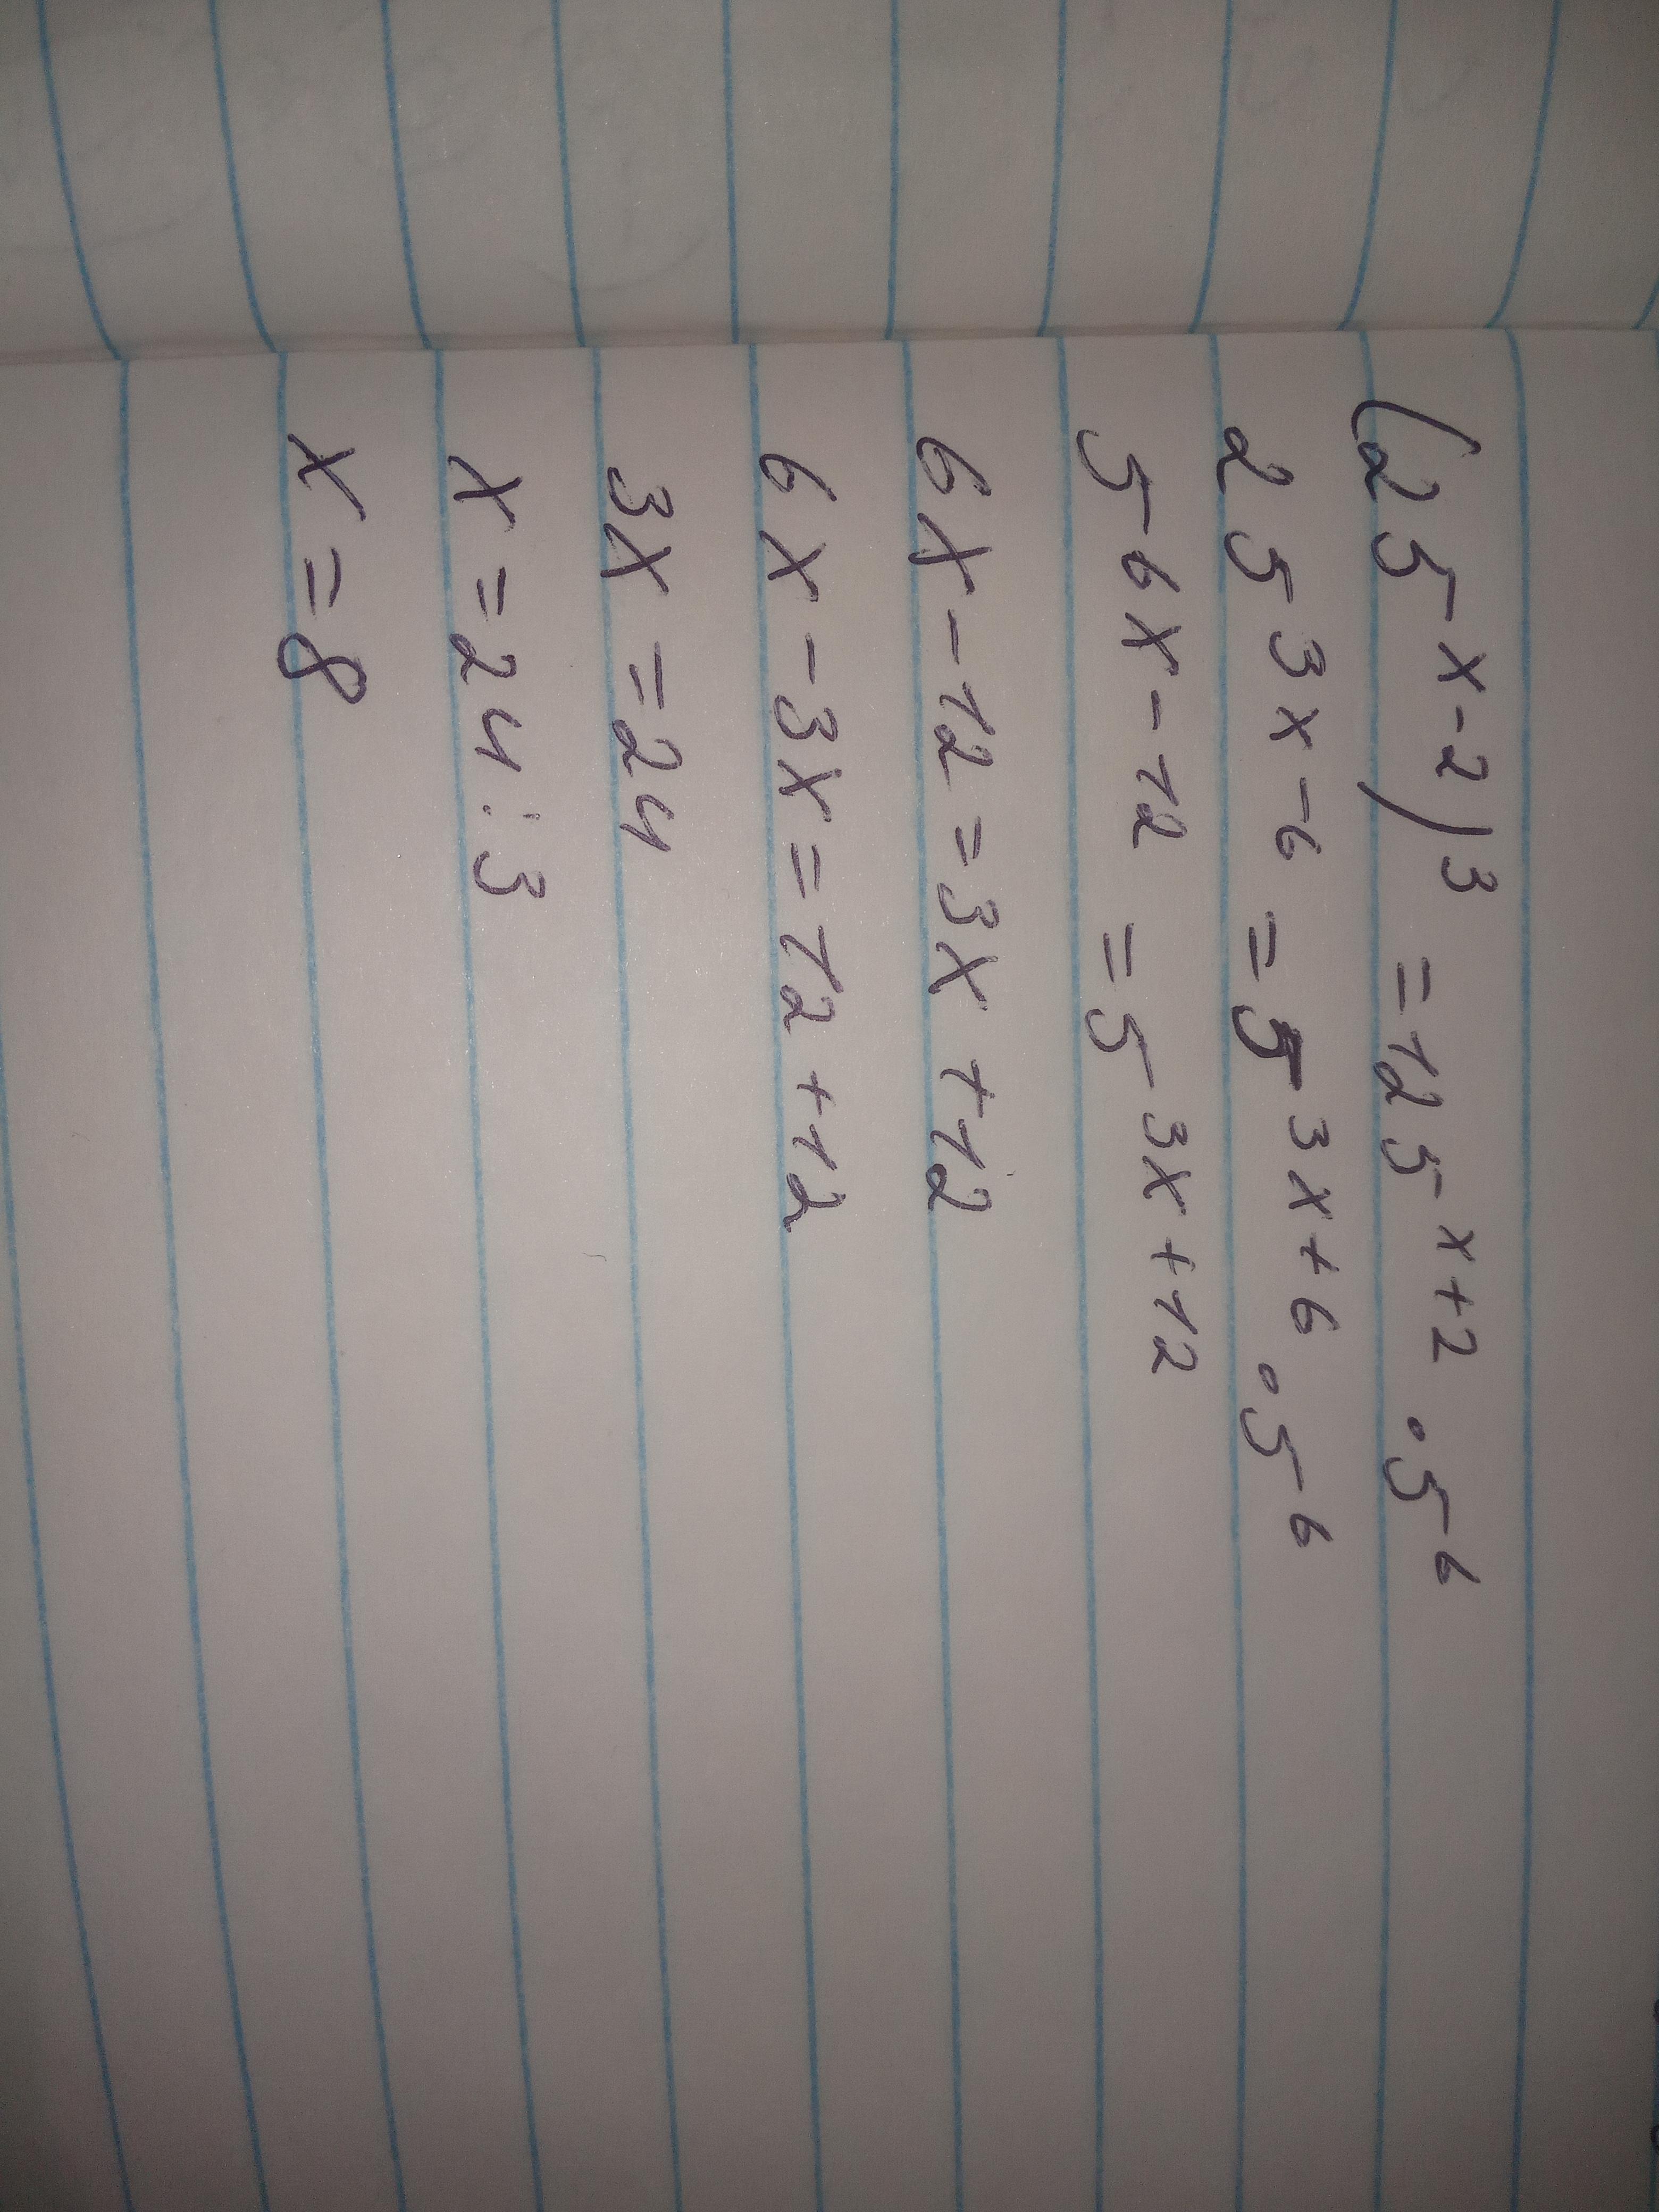 (25^x-2)^3 = 125^x+2 · 5^6
25^3x-6 = 5^3x+6 · 5^6
5^6x-12 = 5^3x+12
6x-12=3x+12
6x-3x=12+12
3x=24
x=24:3
x=8